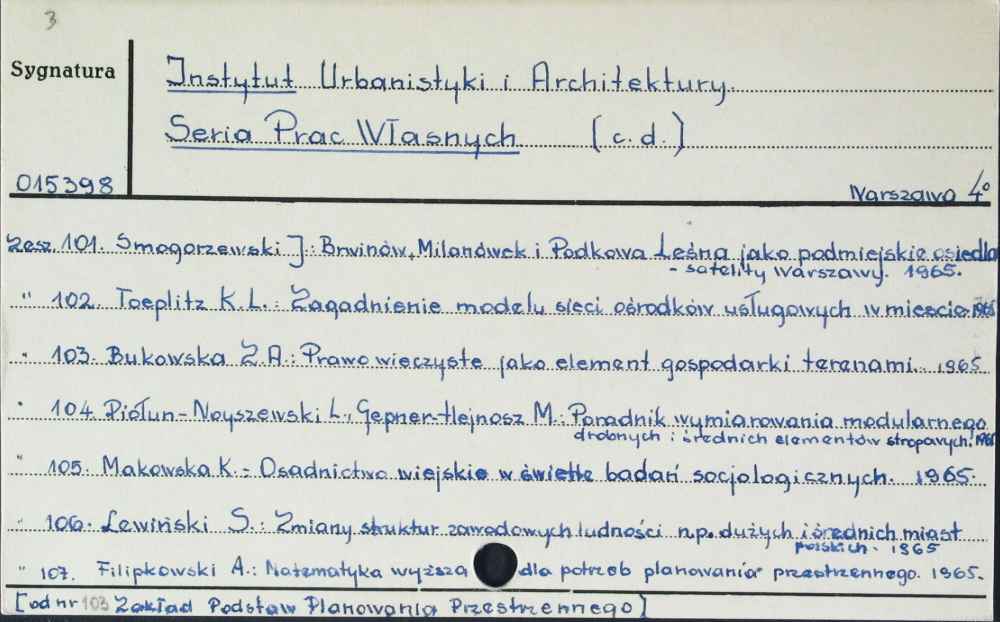 3
Sygnatura
Instytut Urbanistyki i Architektury.
Seria Prac Własnych (c.d.)
015398
Warszawa 4°
Zesz. 101. Smogorzewski J.: Brwinów, Milanówek i Podkowa Leśna jako podmiejskie osiedla
- satelity Warszawy. 1965.
" 102. Toeplitz K.L.: Zagadnienie modelu sieci ośrodków usługowych w mieście. 1965
" 103. Bukowska Z.A.: Prawo wieczyste jako element gospodarki terenami. 1965
" 104. Piołun-Noyszewski L., Gepner-Hejnosz M.: Poradnik wymiarowania modularnego
drobnych i średnich elementów stropowych.
" 105. Makowska K. - Osadnictwo wiejskie w świetle badań socjologicznych. 1965.
" 106. Lewiński S.: Zmiany struktur zawodowych ludności n.p. dużych i średnich miast
polskich. 1965
" 107. Filipkowski A.: Matematyka wyższa dla potrzeb planowania przestrzennego. 1965.
[od nr 103 Zakład Podstaw Planowania Przestrzennego]